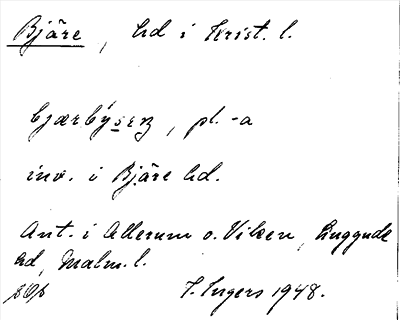 Bjäre, hd i Krist. l.
bjærbýsɛrɳ, pl. -a
inv. i Bjäre hd.
Ant. i Allerum o. Viken, Luggude
hd, Malm. l.
I. Ingers 1948.